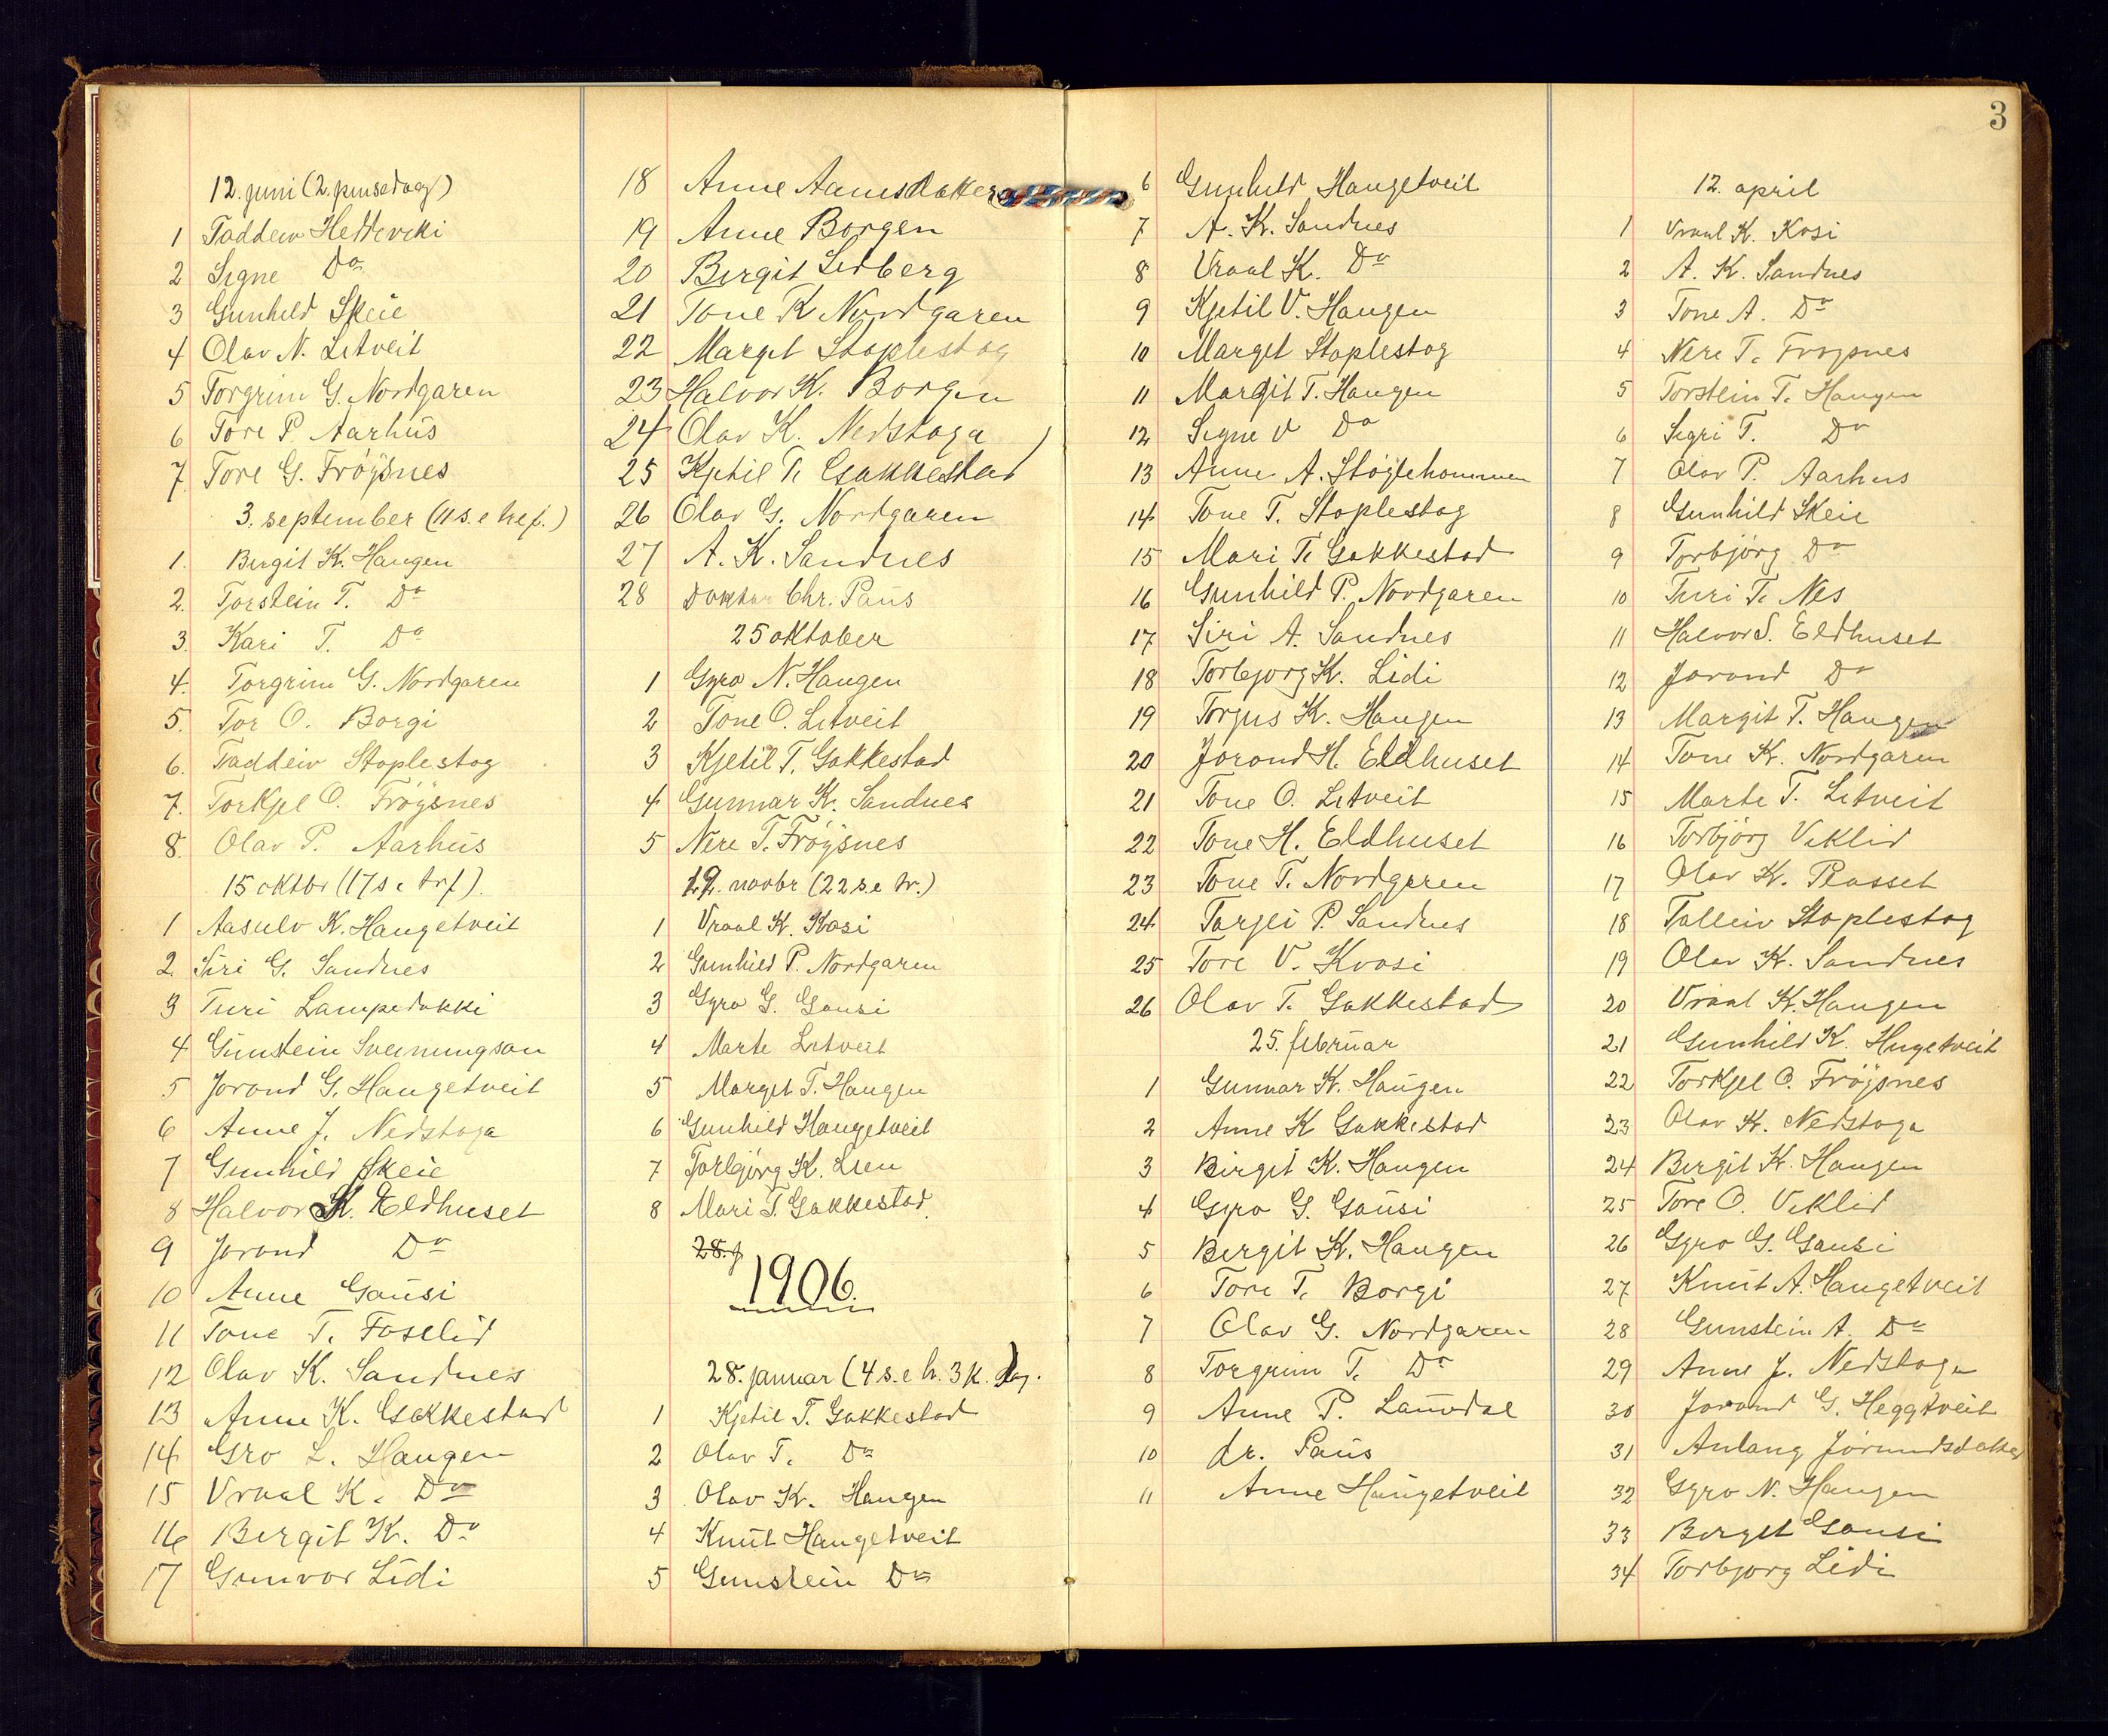 3
12. juni (2. pinsedag)
1 Taddeiv Heddeviki
2 Signe Do
3 Gunhild Skeie
4 Olav N. Litveit
5 Torgrim G. Nordgaren
6 Tore P. Aarhus
7 Tore G. Frøysnes
3. september (11 s. e tref.)
1. Birgit K. Haugen
2. Torstein T. Do
3. Kari T. Do
4. Torgrim G. Nordgaren
5. Tor O. Borgi
6. Taddeiv Stoplestog
7. Torkjel O. Frøysnes
8. Olav P. Aarhus
15 oktbr (17 s e trf).
1 Aasulv K. Haugetveit
2 Siri G. Sandnes
3 Turi Lampedokki
4 Gunstein Sveinungson
5 Jorond G. Haugetveit
6 Anne J. Nedstoga
7 Gunhild Skeie
8 Halvor K. Eldhuset
9 Jorond Do
10 Anne Gausi
11 Tone T. Foselid
12 Olav K. Sandnes
13 Anne K. Gakkestad
14 Gro L. Haugen
15 Vraal K. Do
16 Birgit K. Do
17 Gunvor Lidi
18 Anne Aamsdokker
19 Anne Borgen
20 Birgit Lidberg
21 Tone K Nordgaren
22 Margit Stoplestog
23 Halvor H. Borgen
24 Olav K. Nedstoga
25 Kjetil T. Gakkestad
26 Olav G. Nordgaren
27 A. K. Sandnes
28 Doktor Chr. Paus
25 oktober
1 Gyro N. Haugen
2 Tone O. Litveit
3 Kjetil T. Gakkestad
4 Gunnar K. Sandnes
5 Nere T. Frøysnes
19. novbr (22 s. e tr.)
1 Vraal K. Kosi
2 Gunhild P. Nordgaren
3 Gyro G. Gausi
4 Marte Litveit
5 Margit T. Haugen
6 Gunhild Haugetveit
7 Torbjørg K. Lien
8 Mari T. Gakkestad
28. j
1906.
28. januar (4 s. e h. 3 k. dag.
1 Kjetil T. Gakkestad
2 Olav T. Do
3 Olav K. Haugen
4 Knut Haugetveit
5 Gunstein Do
6 Gunhild Haugetveit
7 A. K. Sandnes
8 Vraal K. Do
9 Kjetil V. Haugen
10 Margit Stoplestog
11 Margit T. Haugen
12 Signe V Do
13 Anne A. Støylehommen
14 Tone T. Stoplestog
15 Mari T. Gakkestad
16 Gunhild P. Nordgaren
17 Siri A. Sandnes
18 Torbjorg K. Lidi
19 Torjus K. Haugen
20 Jorond H. Eldhuset
21 Tone O. Litveit
22 Tone H. Eldhuset
23 Tone T. Nordgaren
24 Targei P. Sandnes
25 Tore V. Kvosi
26 Olav T. Gakkestad
25. februar
1 Gunnar K. Haugen
2 Anne K Gakkestad
3 Birgit K. Haugen
4 Gyro G. Gausi
5 Birgit K. Haugen
6 Tore T. Borgi
7 Olav G. Nordgaren
8 Torgrim T. Do
9 Anne P. Lauvdal
10 dr. Paus
11 Anne Haugetveit
12. april
1 Vraal K. Kosi
2 A. K. Sandnes
3 Tone A. Do
4 Nere T. Froysnes
5 Torstein T. Haugen
6 Sigri T. Do
7 Olav P. Aarhus
8 Gunhild Skeie
9 Torbjørg Do
10 Turi T. Nes
11 Halvor S. Eldhuset
12 Jorond Do
13 Margit T. Haugen
14 Tone K. Nordgaren
15 Marte T. Litveit
16 Torbjörg Viklid
17 Olav K. Plasset
18 Talleiv Stoplestog
19 Olav K. Sandnes
20 Vraal K. Haugen
21 Gunhild K. Hugetveit
22 Torkjel O. Frøysnes
23 Olav K. Nedstoga
24 Birgit K. Haugen
25 Tore O. Viklid
26 Gyro G. Gausi
27 Knut A. Haugetveit
28 Gunstein A. Do
29 Anne J. Nedstoga
30 Jorond G. Heggtveit
31 Aulaug Jörundsdatter
32 Gyro N. Haugen
33 Birgit Gousi
34 Torbjorg Lidi